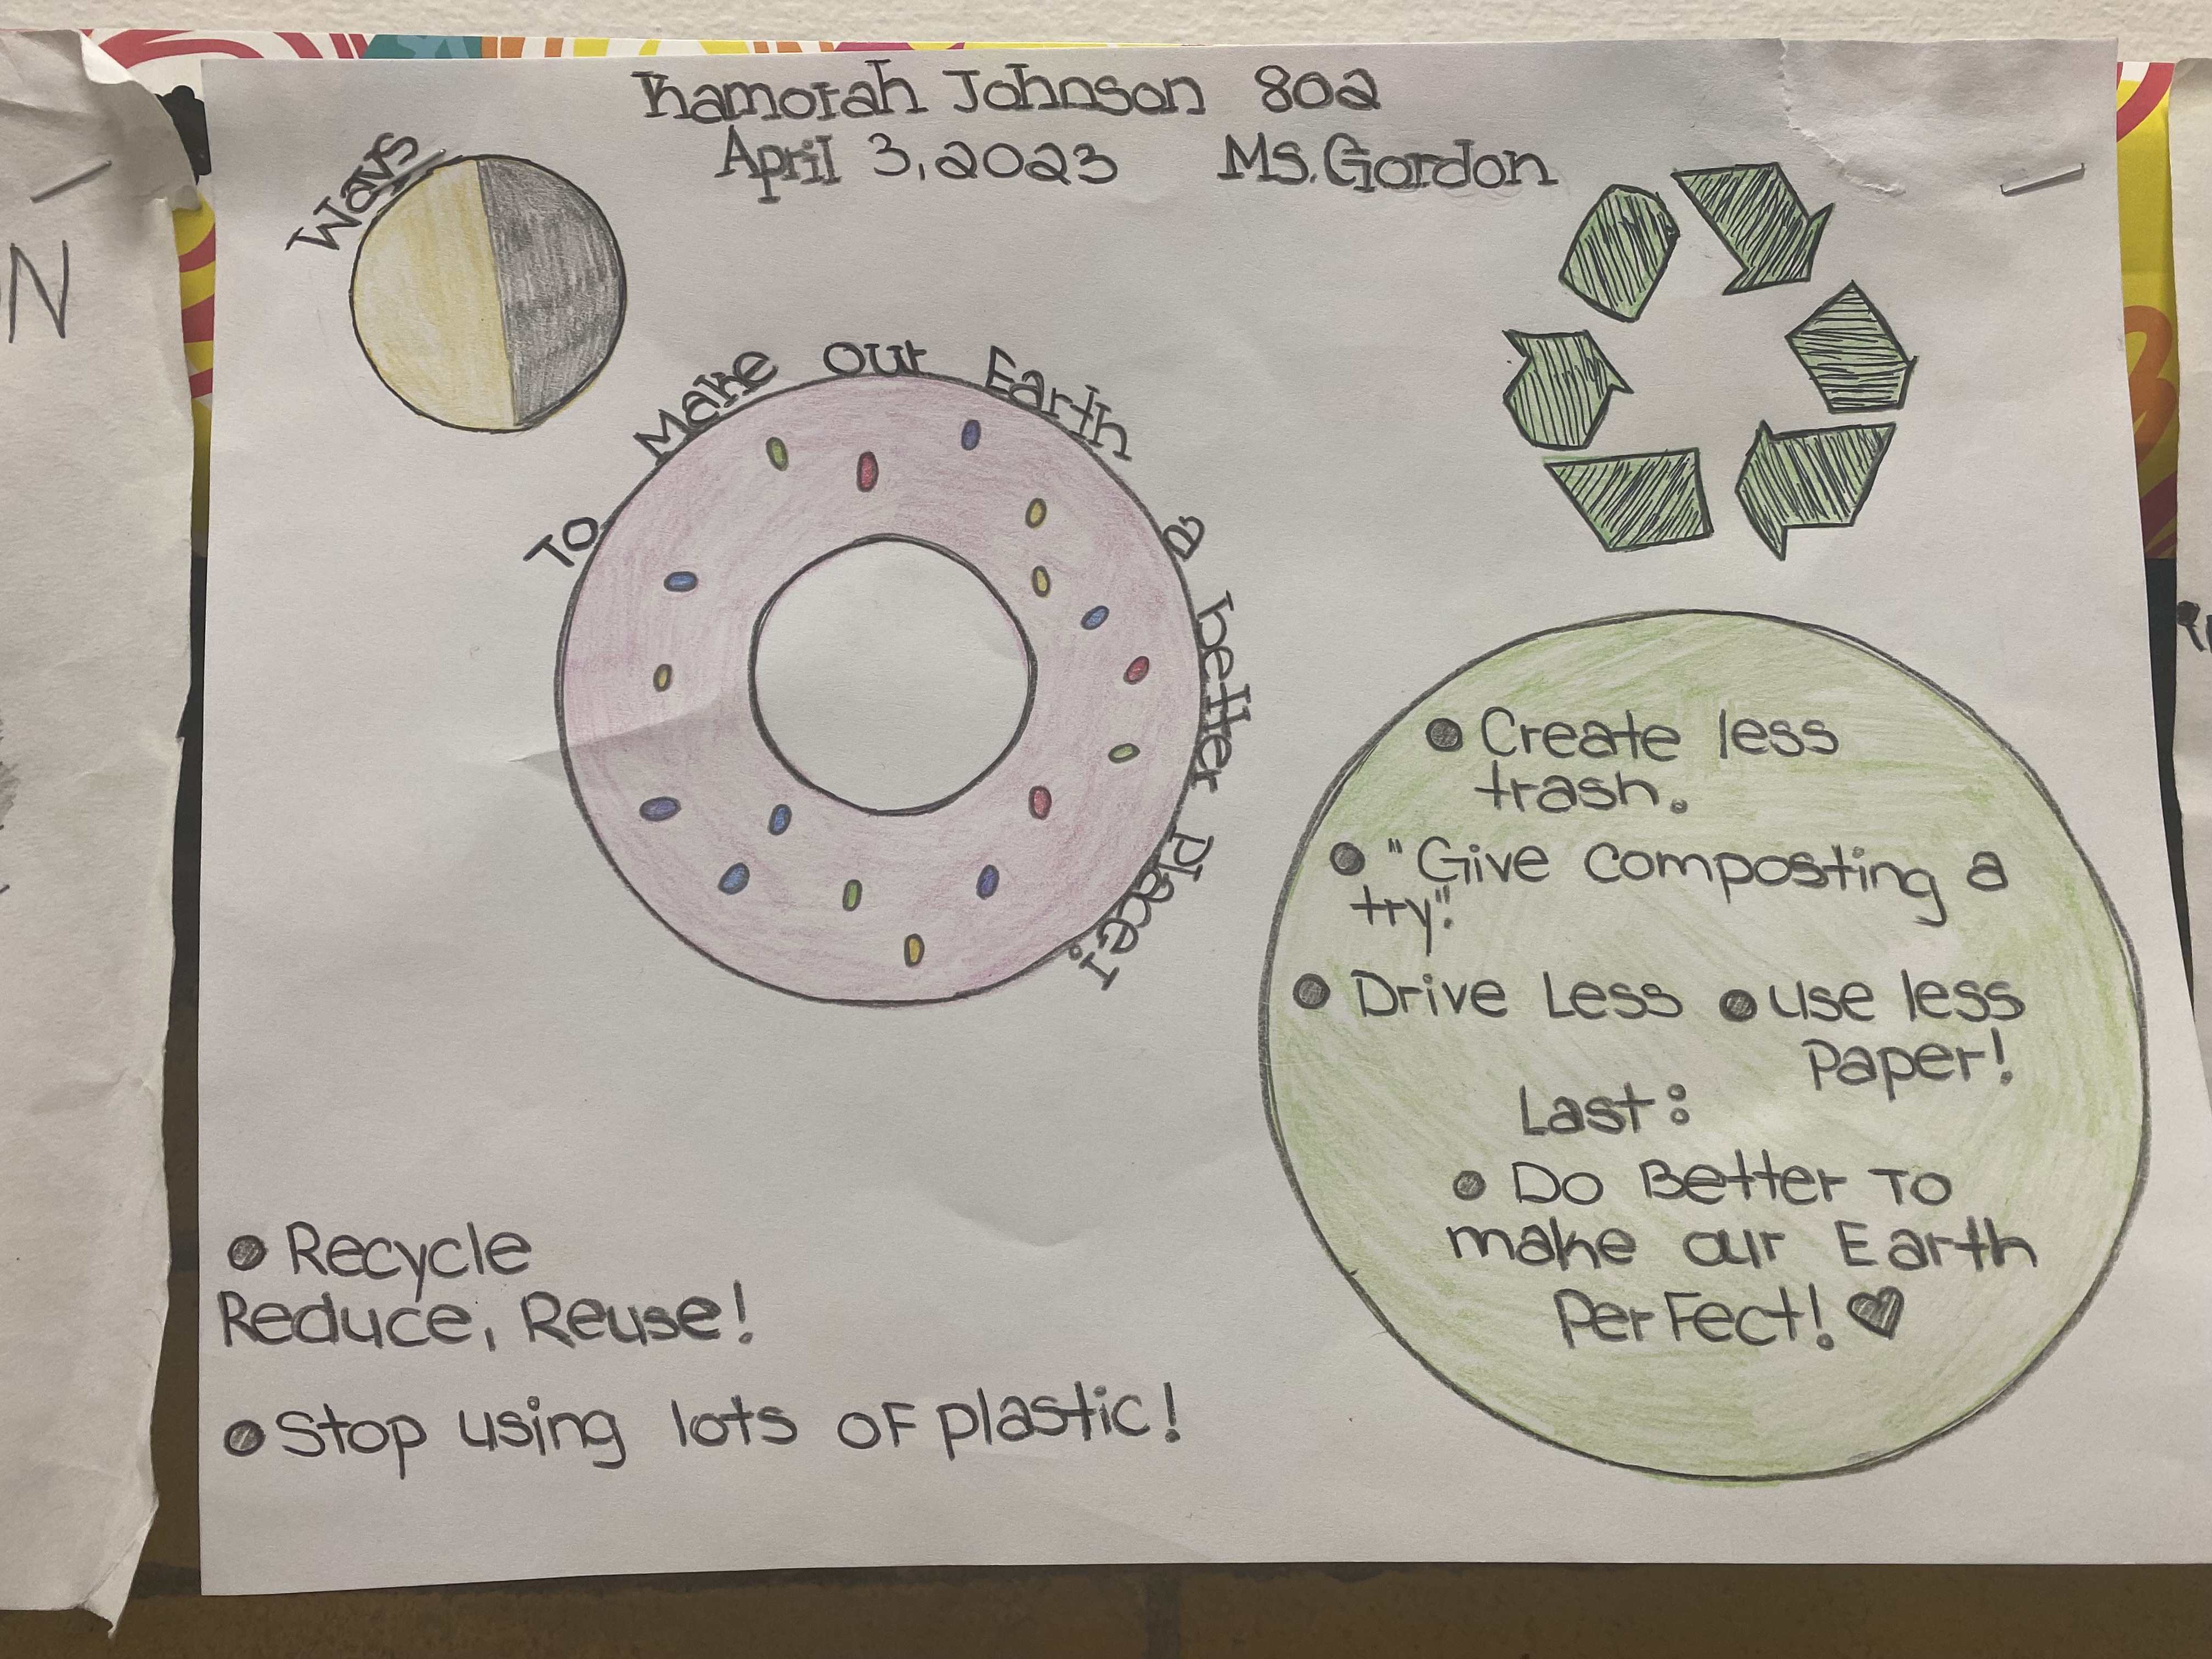 Kamorah Johnson 802
April 3, 2023 Ms. Gordon
Ways
To Make our Earth a better place!
• Create less
trash.
• "Give composting a
try".
• Drive Less • use less
Paper!
Last:
• Do Better To
make our Earth
PerFect! ♥
• Recycle
Reduce, Reuse!
• Stop using lots oF plastic!
N